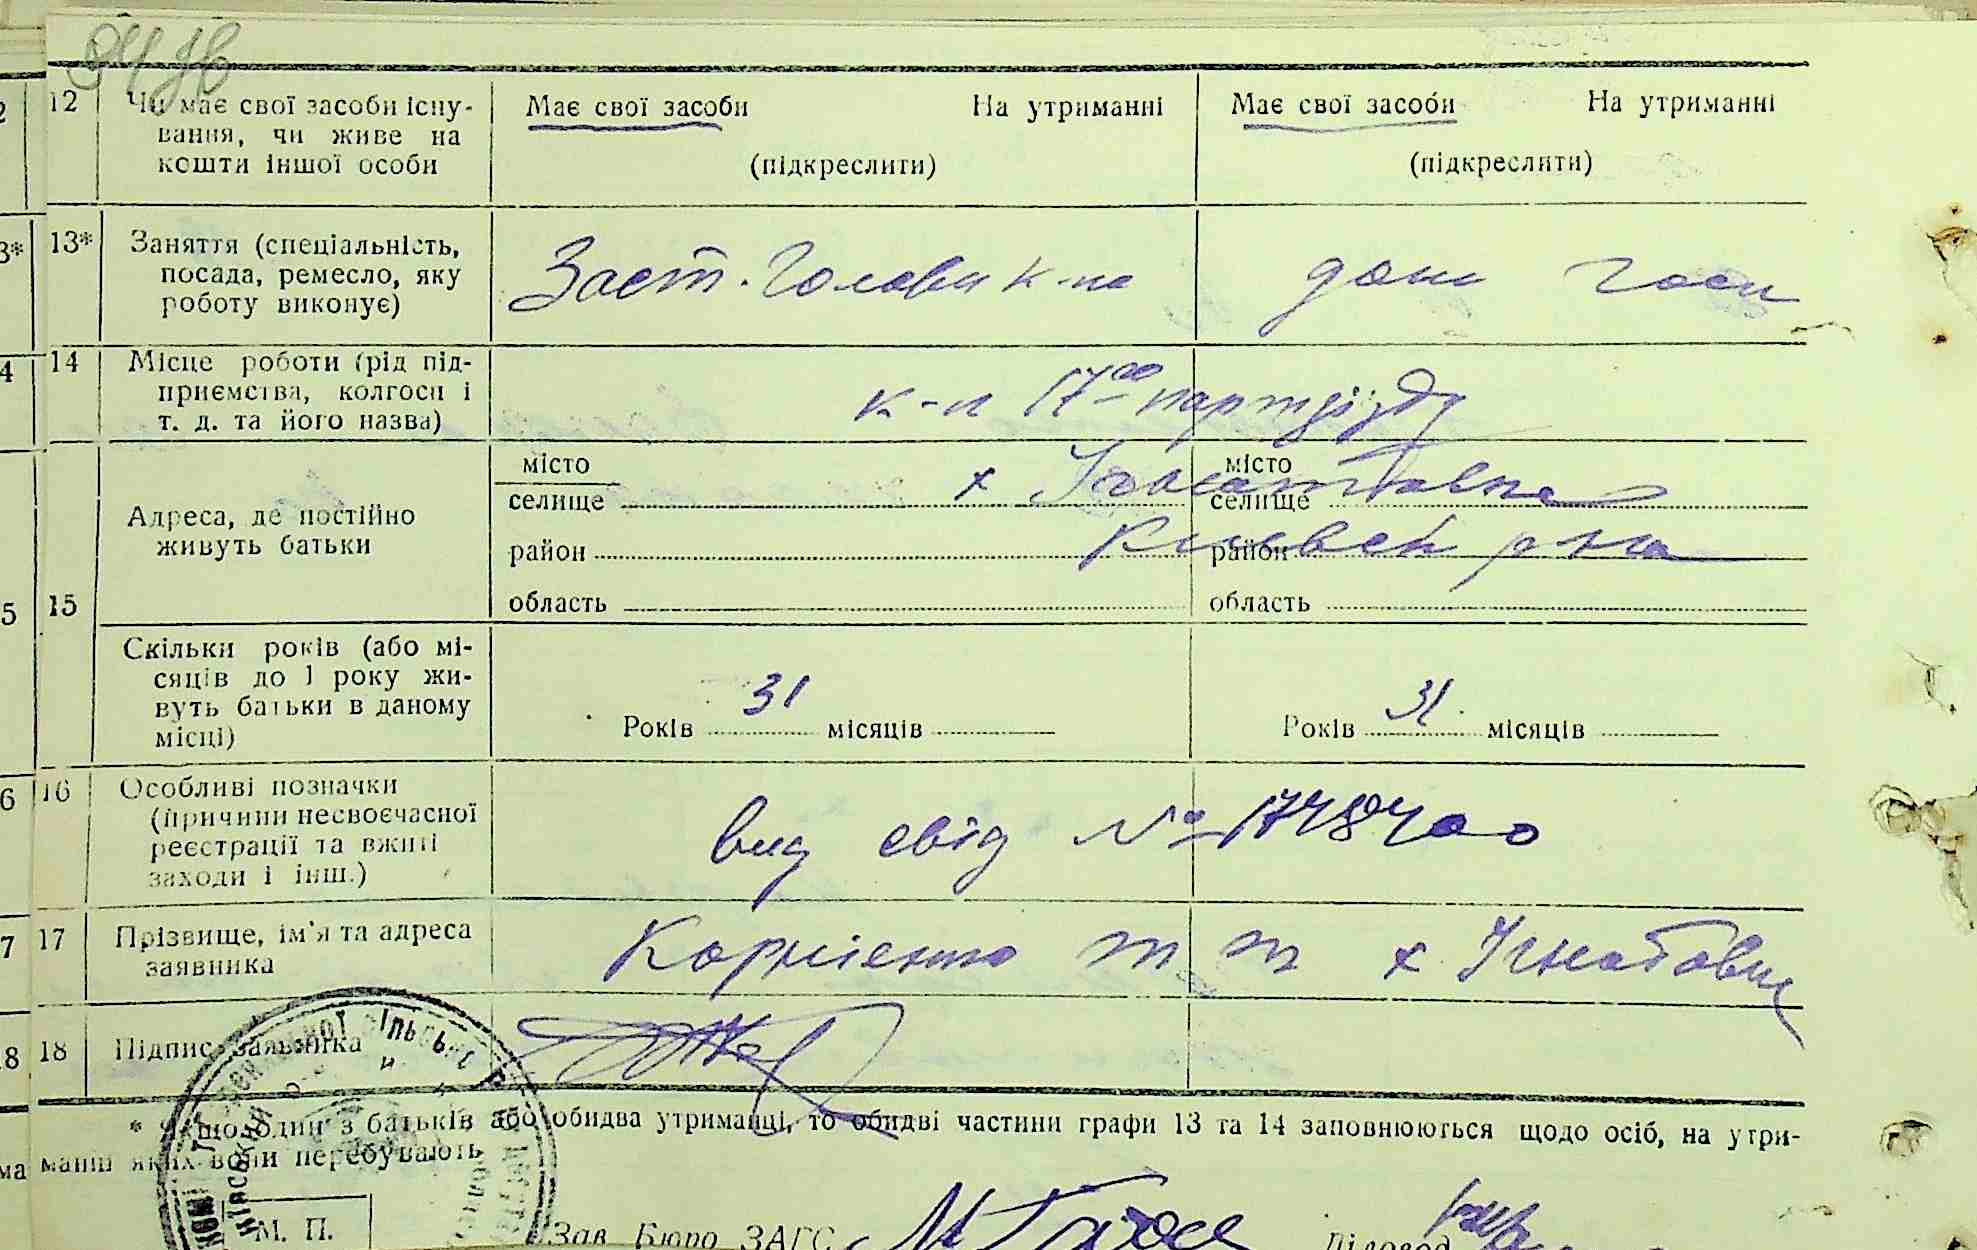 12 Чи має свої засоби існу-
вання, чи живе на
кошти іншої особи
Має свої засоби На утриманні
(підкреслити)
Має свої засоби На утриманні
(підкреслити)
13* Заняття (спеціальність,
посада, ремесло, яку
роботу виконує)
Заст. Голови к-па
дом госп
14 Місце роботи (рід під-
приємства, колгосп і
т. д. та його назва)
к-п 17 партзїзду
15 Адреса, де постійно
живуть батьки
місто
селище
район
область
місто
селище
район
область
х Ігнатовка
р-на
Скільки років (або мі-
сяців до 1 року жи-
вуть батьки в даному
місці)
Років 31 місяців
Років 31 місяців
16 Особливі позначки
(причини несвоєчасної
реєстрації та вжиті
заходи і інш.)
вид свід №
17 Прізвище, ім'я та адреса
заявника
Корнієнко т т х Ігнатовка
18 Підпис заявника
* Якщо один з батьків або обидва утриманці, то обидві частини графи 13 та 14 заповнюються щодо осіб, на утри-
манні яких вони перебувають
М. П.
Зав Бюро ЗАГС
Діловод